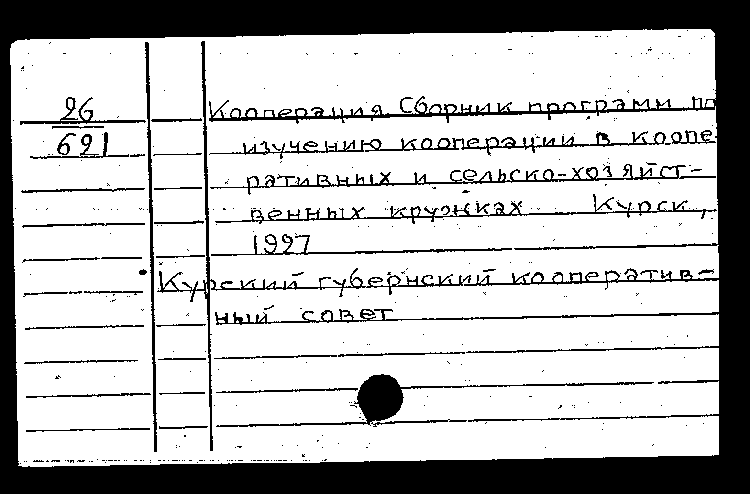 26
691
Кооперация Сборник программ по
изучению кооперации в коопе
ративных и сельско-хозяйст-
венных кружках Курск,
1927
Курский губернский кооператив-
ный совет